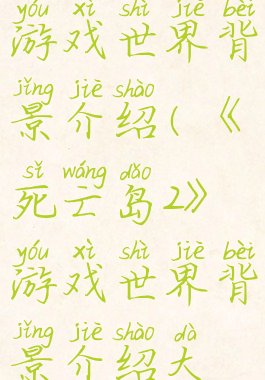 yóu xì shì jiè bèi
游戏世界背
jǐng jiè shào
景介绍(《
sǐ wáng dǎo
死亡岛2》
yóu xì shì jiè bèi
游戏世界背
jǐng jiè shào dà
景介绍大